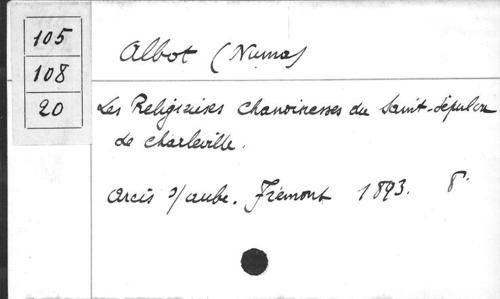 105
108
20
Albot (Numa)
Les Religieuses chanoinesses du Saint-Sépulcre
de Charleville.
Arcis s/aube. Frémont 1893. 8°